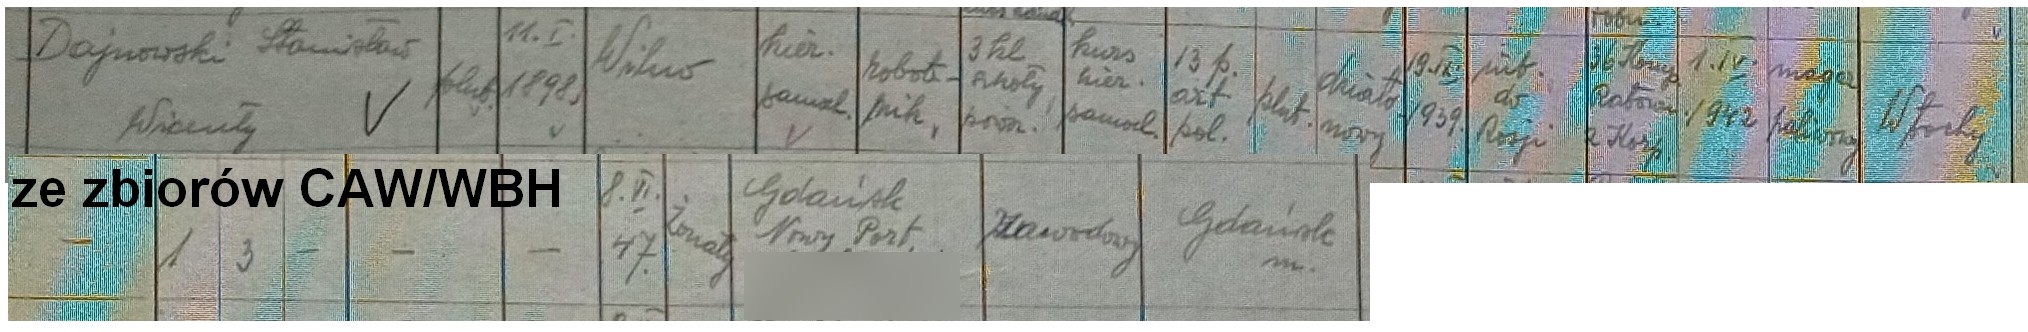 Dajnowski Stanisław
Wicenty
plut.
11.I.
1898.
Wilno
kier.
samoch.
robot-
nik
3 kl
szkoły
powsz.
kurs
kier.
samoch.
13 p.
art
pol.
plut.
działo
nowy
19.IX.
1939.
int.
do
Rosji
36 Komp
Ratown.
2 Korp.
1.IV.
1942
magaz
paliwowy
Włochy
ze zbiorów CAW/WBH
—
1
3
—
—
—
8.VI.
47.
żonaty
Gdańsk
Nowy Port.
zawodowy
Gdańsk
m.